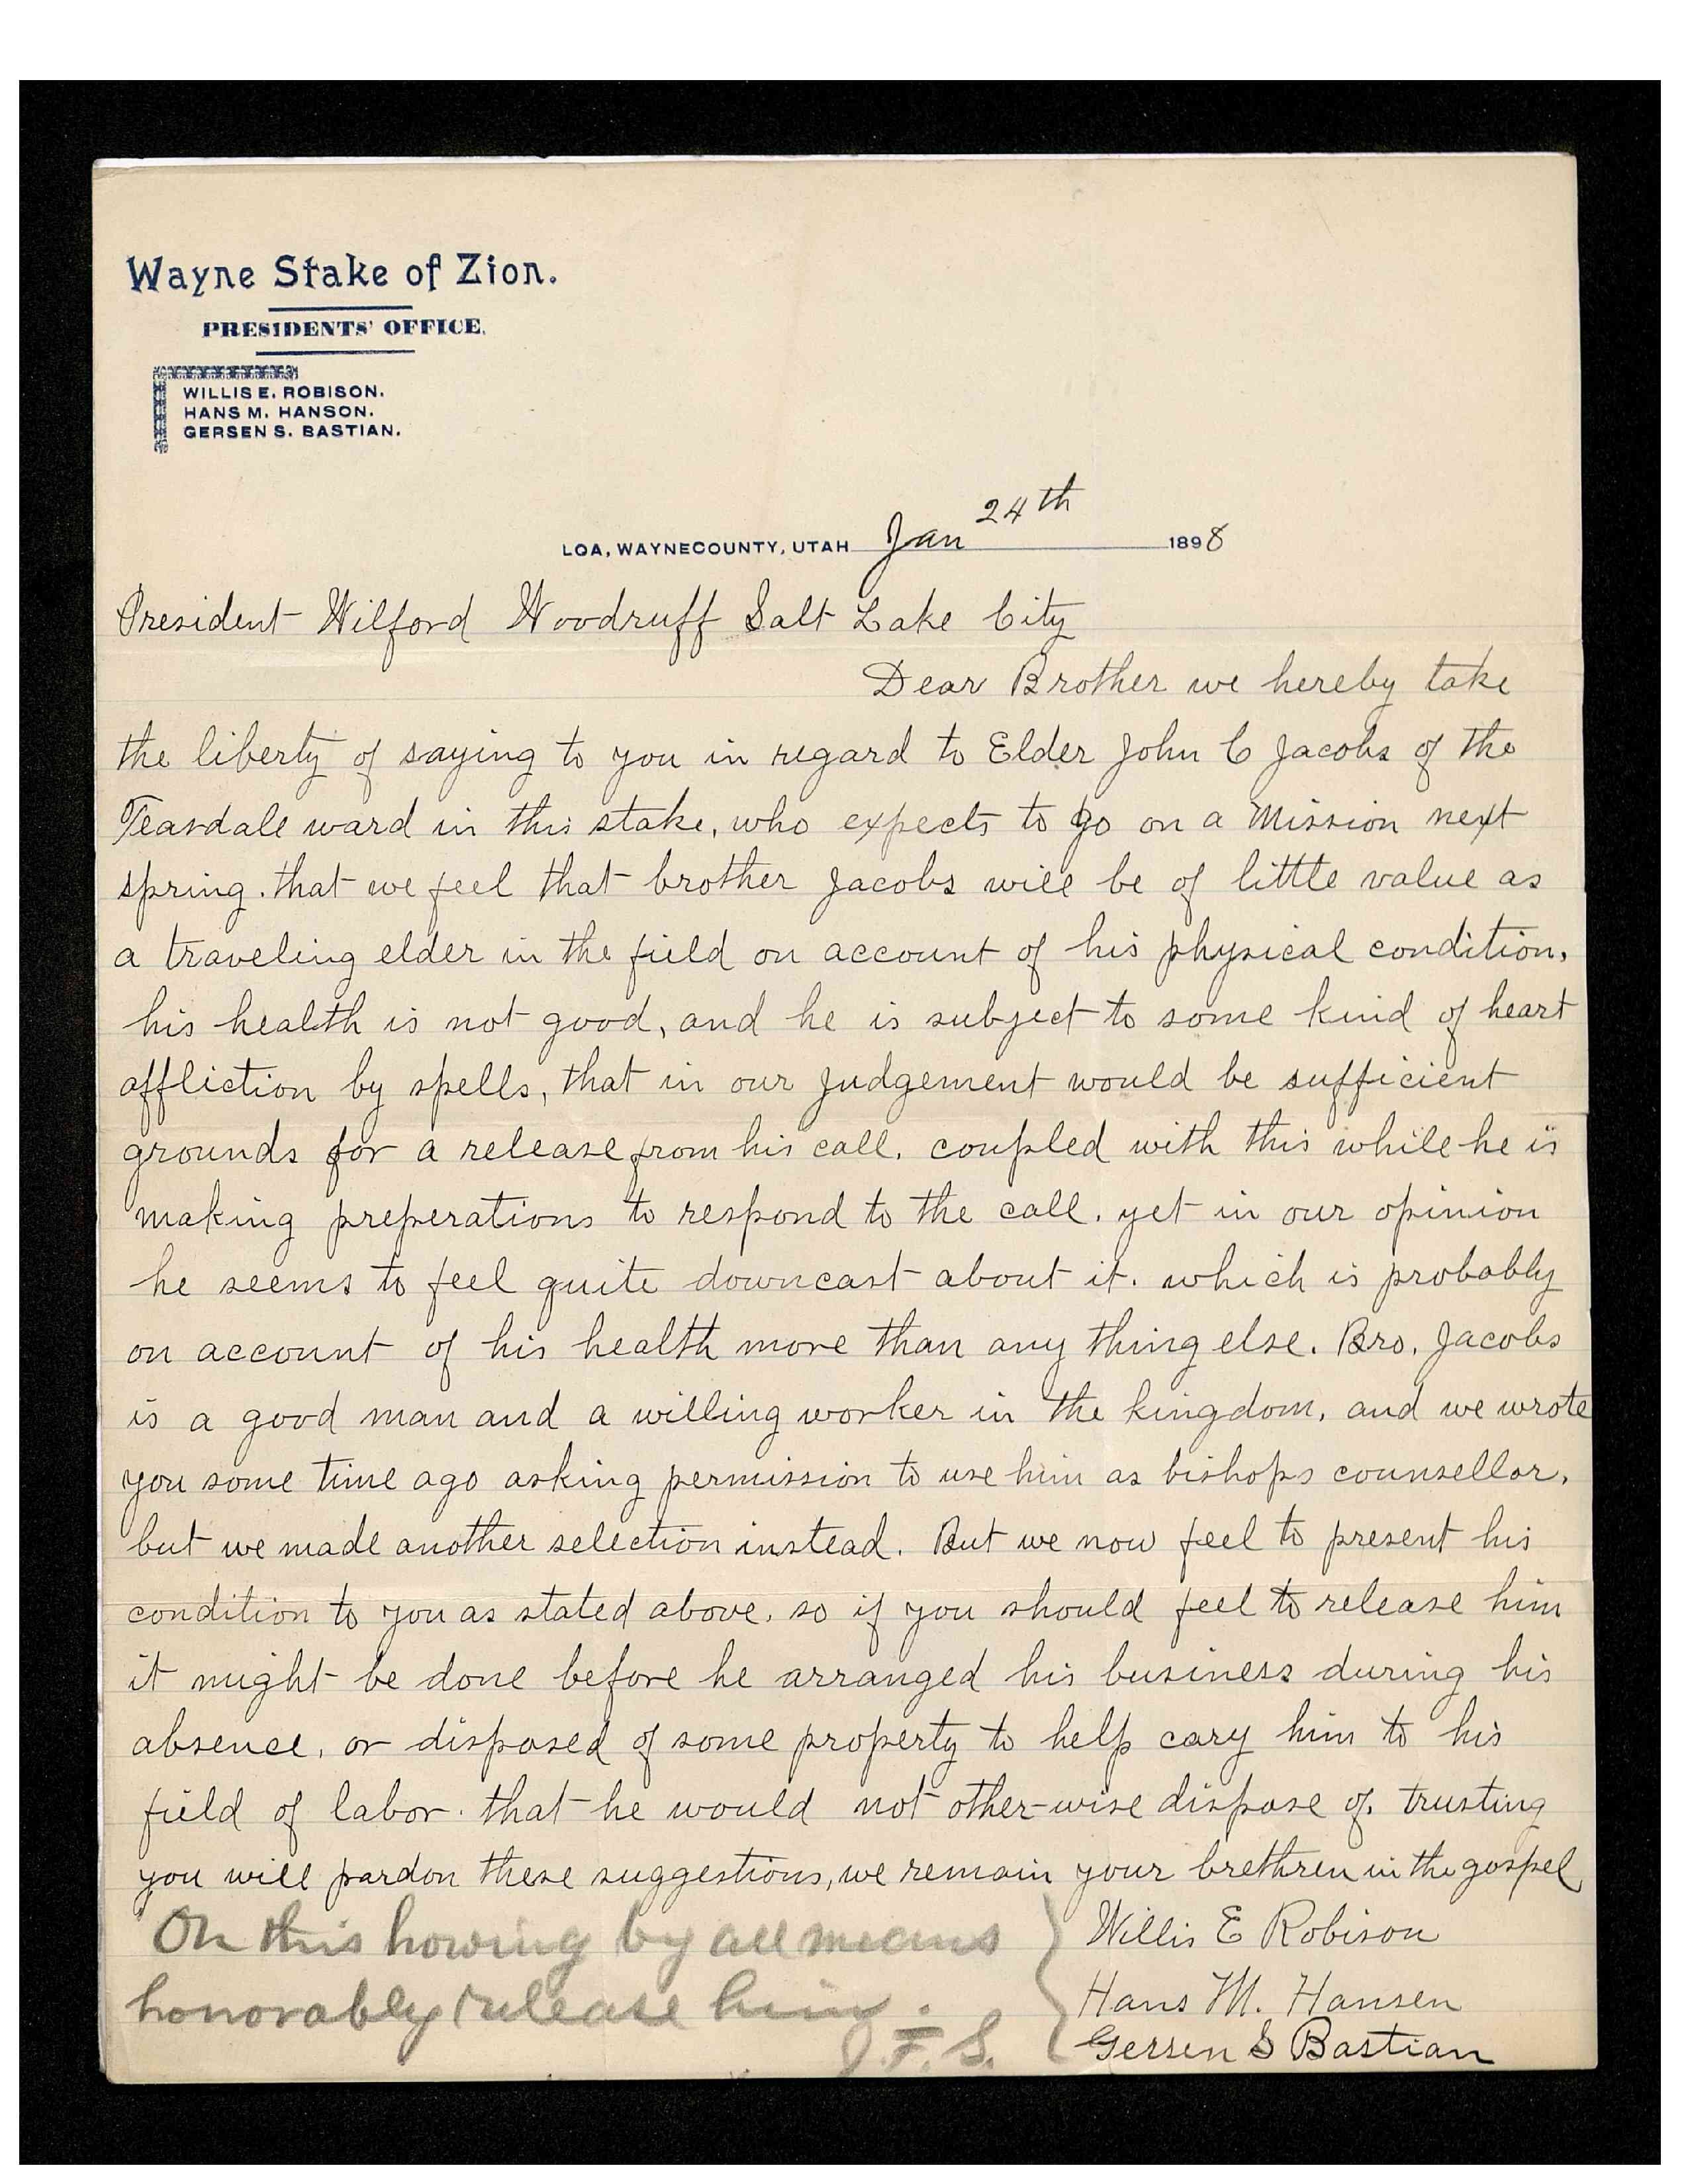 Wayne Stake of Zion.
PRESIDENTS' OFFICE.
WILLIS E. ROBISON.
HANS M. HANSON.
GERSEN S. BASTIAN.
LOA, WAYNECOUNTY, UTAH Jan 24th 1898
President Wilford Woodruff Salt Lake City
Dear Brother we hereby take
the liberty of saying to you in regard to Elder John C Jacobs of the
Teasdale ward in this stake, who expects to go on a Mission next
spring. that we feel that brother Jacobs will be of little value as
a traveling elder in the field on account of his physical condition,
his health is not good, and he is subject to some kind of heart
affliction by spells, that in our judgement would be sufficient
grounds for a release from his call. coupled with this while he is
making preperations to respond to the call. yet in our opinion
he seems to feel quite downcast about it. which is probably
on account of his health more than any thing else. Bro. Jacobs
is a good man and a willing worker in the kingdom, and we wrote
you some time ago asking permission to use him as bishops counsellor,
but we made another selection instead. But we now feel to present his
condition to you as stated above, so if you should feel to release him
it might be done before he arranged his business during his
absence, or disposed of some property to help cary him to his
field of labor. that he would not other-wise dispose of. trusting
you will pardon these suggestions, we remain your brethren in the gospel
Willis E Robison
Hans M. Hansen
Gersen S Bastian
On this howing by all means
honorably release him.
J. F. S.